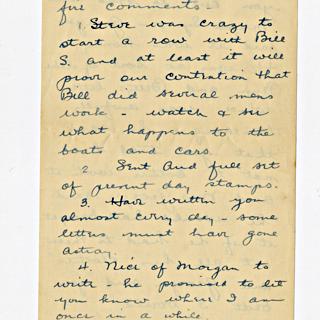 few comments -
1. Steve was crazy to
start a row with Bill
S. and at least it will
prove our contention that
Bill did several mens
work - watch & see
what happens to the
boats and cars.
2. Sent Aud full set
of present day stamps.
3. Have written you
almost every day - some
letters must have gone
astray.
4. Nice of Morgan to
write - he promised to let
you know where I am
once in a while